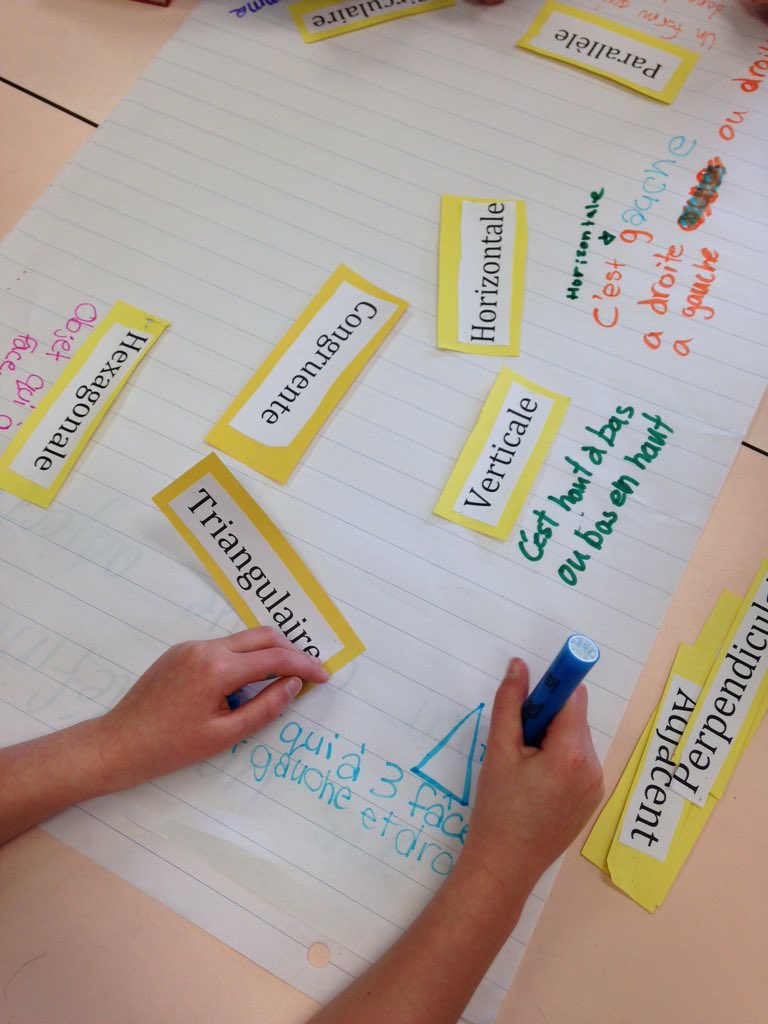 Circulaire
Parallèle
Un form qui
Horizontale
Horizontale
C'est gauche
a droite ou droite
a gauche
Congruente
Hexagonale
Objet qui a
face
Verticale
C'est haut à bas
ou bas en haut
Triangulaire
qui à 3 face
gauche et dro
Perpendicula
Adjacent